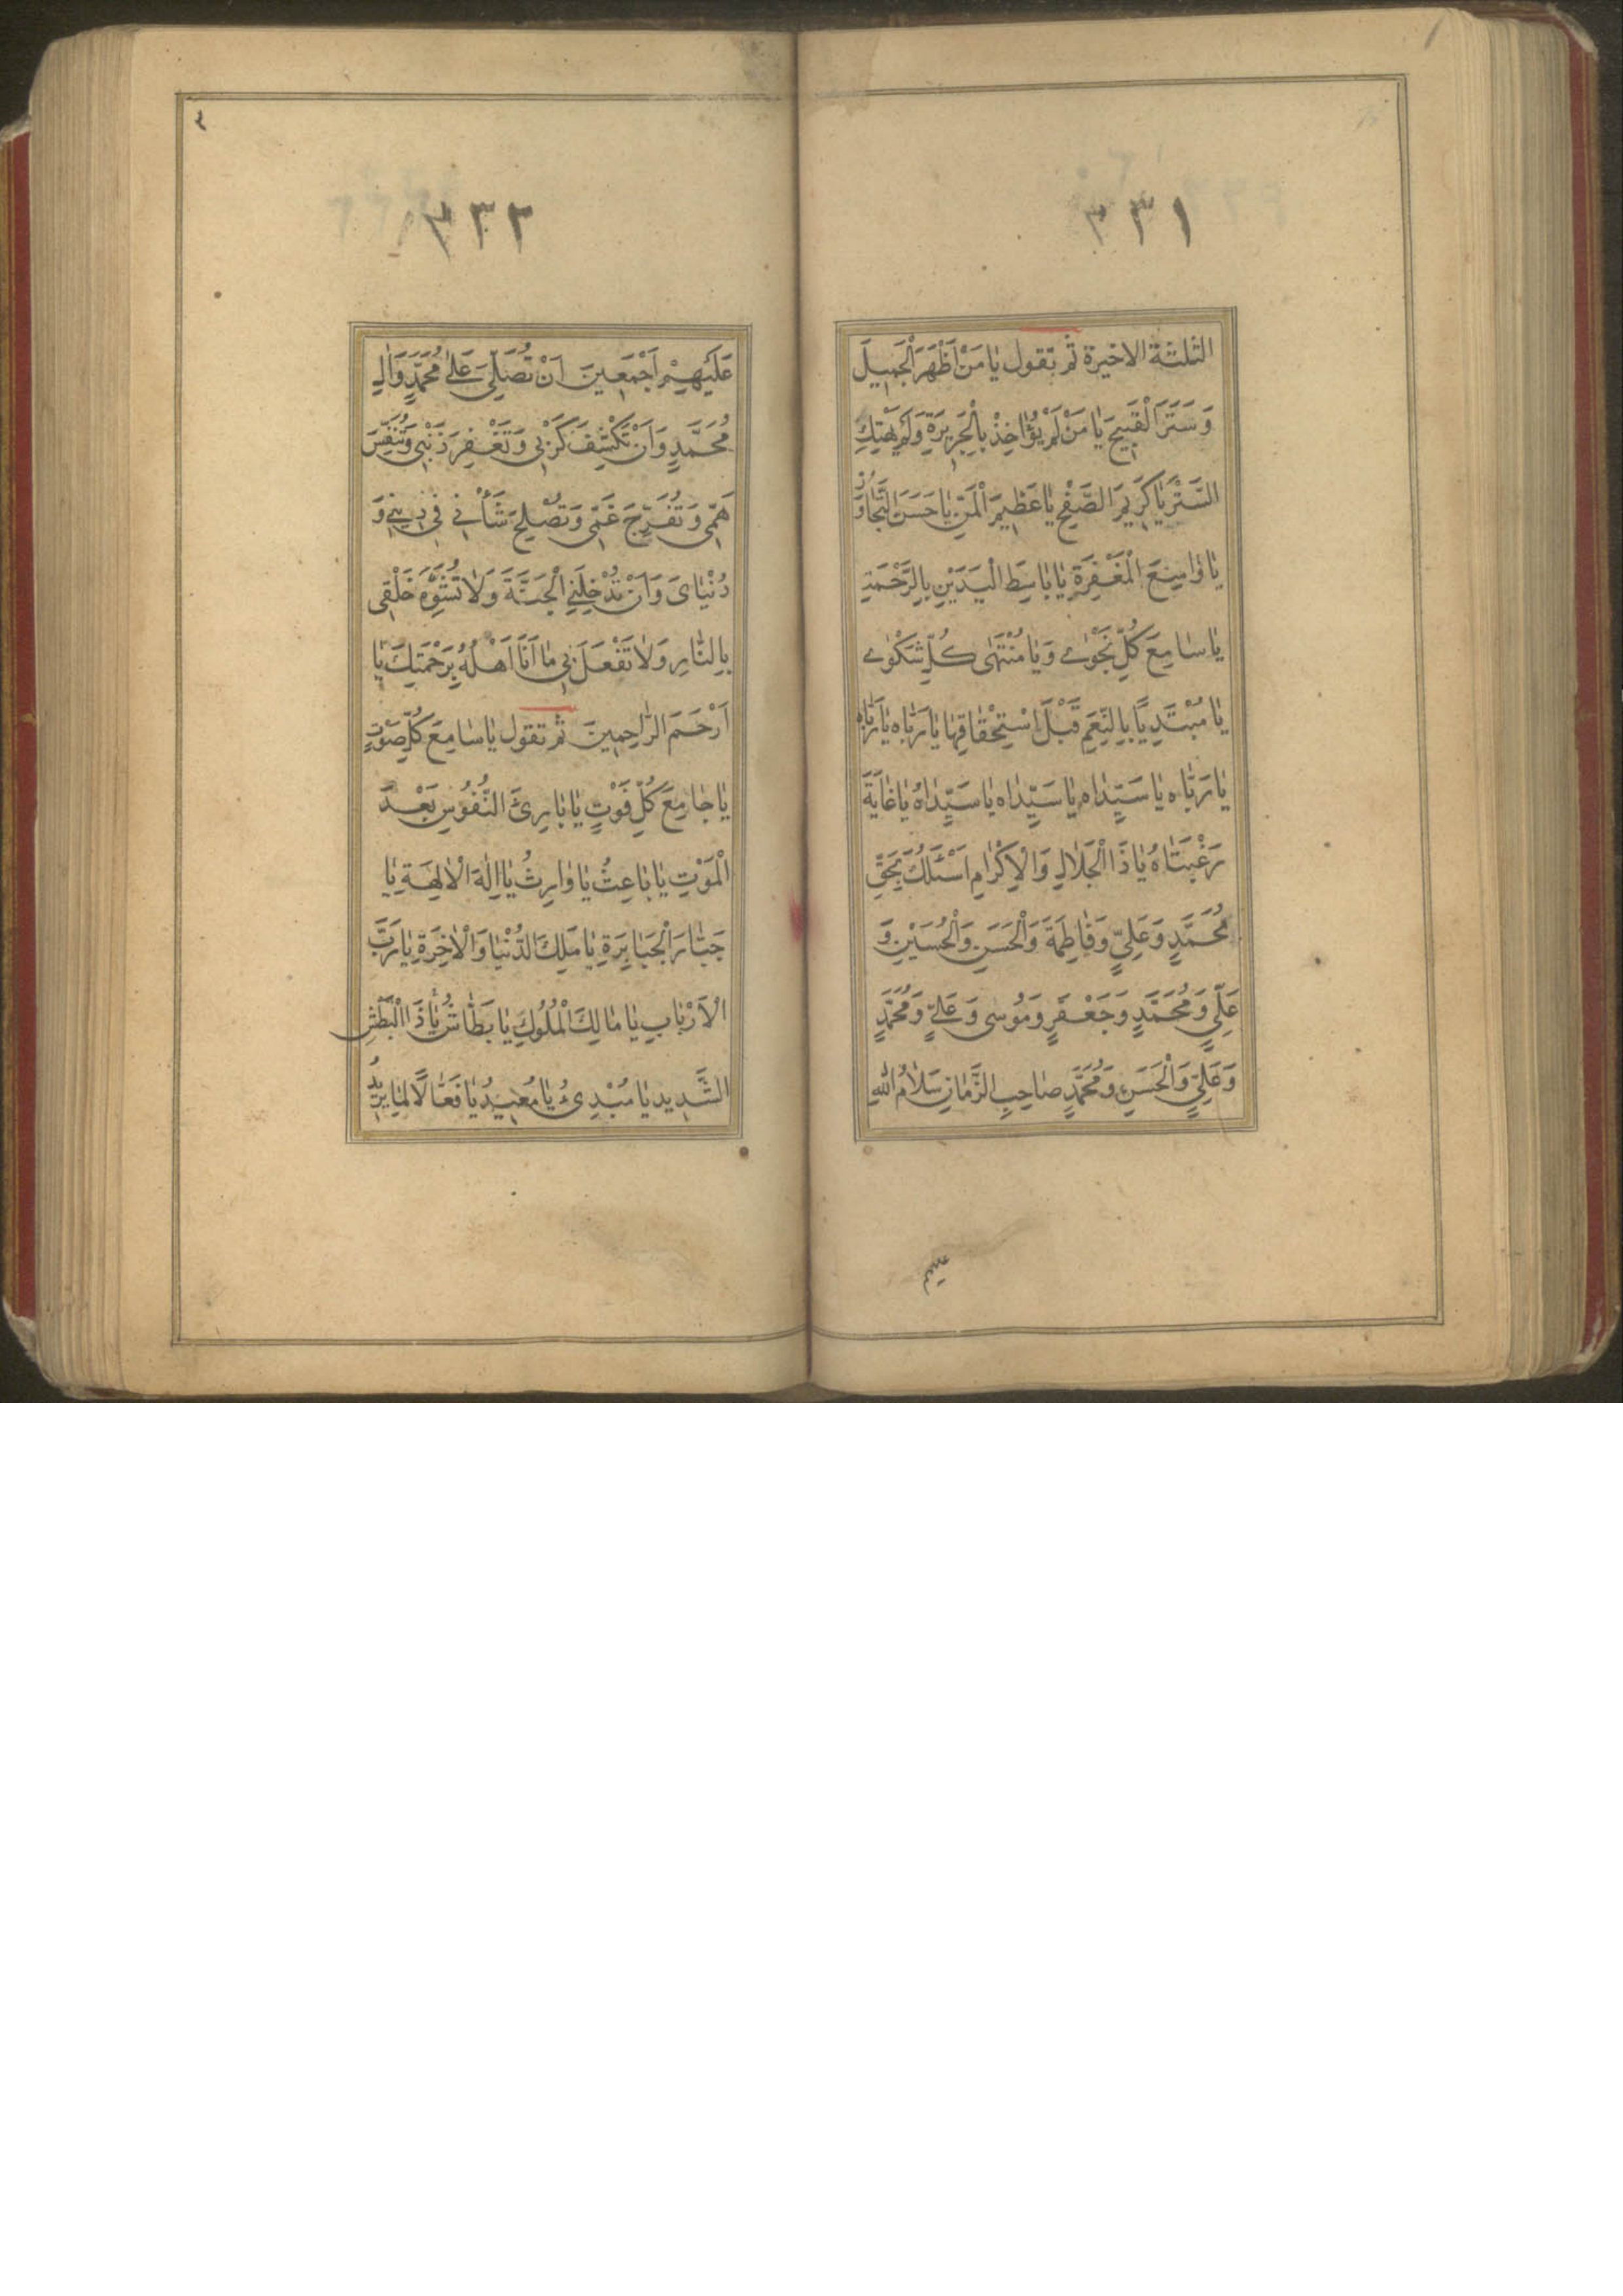 ٣٣١
الثلثة الاخيرة ثم تقول يَا مَنْ اَظْهَرَ الْجَمِيلَ
وَسَتَرَ الْقَبِيحَ يَا مَنْ لَمْ يُؤَاخِذْ بِالْجَرِيرَةِ وَلَمْ يَهْتِكِ
السِّتْرَ يَا كَرِيمَ الصَّفْحِ يَا عَظِيمَ الْمَنِّ يَا حَسَنَ التَّجَاوُزِ
يَا وَاسِعَ الْمَغْفِرَةِ يَا بَاسِطَ الْيَدَيْنِ بِالرَّحْمَةِ
يَا سَامِعَ كُلِّ نَجْوٰى وَيَا مُنْتَهٰى كُلِّ شَكْوٰى
يَا مُبْتَدِيًا بِالنِّعَمِ قَبْلَ اسْتِحْقَاقِهَا يَا رَبَّاه يَا رَبَّاه
يَا رَبَّاه يَا سَيِّدَاه يَا سَيِّدَاه يَا سَيِّدَاهُ يَا غَايَةَ
رَغْبَتَاهُ يَا ذَا الْجَلَالِ وَالْاِكْرَامِ اَسْئَلُكَ بِحَقِّ
مُحَمَّدٍ وَعَلِيٍّ وَفَاطِمَةَ وَالْحَسَنِ وَالْحُسَيْنِ وَ
عَلِيٍّ وَمُحَمَّدٍ وَجَعْفَرٍ وَمُوسٰى وَعَلِيٍّ وَمُحَمَّدٍ
وَعَلِيٍّ وَالْحَسَنِ وَمُحَمَّدٍ صَاحِبِ الزَّمَانِ سَلَامُ اللهِ
٣٣٢
عَلَيْهِمْ اَجْمَعِينَ اَنْ تُصَلِّيَ عَلٰى مُحَمَّدٍ وَاٰلِ
مُحَمَّدٍ وَاَنْ تَكْشِفَ كَرْبِي وَتَغْفِرَ ذَنْبِي وَتُنَفِّسَ
هَمِّي وَتُفَرِّجَ غَمِّي وَتُصْلِحَ شَأْنِي فِي دِينِي وَ
دُنْيَايَ وَاَنْ تُدْخِلَنِي الْجَنَّةَ وَلَا تُشَوِّهَ خَلْقِي
بِالنَّارِ وَلَا تَفْعَلَ بِي مَا اَنَا اَهْلُهُ بِرَحْمَتِكَ يَا
اَرْحَمَ الرَّاحِمِينَ ثم تقول يَا سَامِعَ كُلِّ صَوْتٍ
يَا جَامِعَ كُلِّ فَوْتٍ يَا بَارِئَ النُّفُوسِ بَعْدَ
الْمَوْتِ يَا بَاعِثُ يَا وَارِثُ يَا اِلٰهَ الْاٰلِهَةِ يَا
جَبَّارَ الْجَبَابِرَةِ يَا مَلِكَ الدُّنْيَا وَالْاٰخِرَةِ يَا رَبَّ
الْاَرْبَابِ يَا مَالِكَ الْمُلُوكِ يَا بَطَّاشُ يَا ذَا الْبَطْشِ
الشَّدِيدِ يَا مُبْدِئُ يَا مُعِيدُ يَا فَعَّالًا لِمَا يُرِيدُ